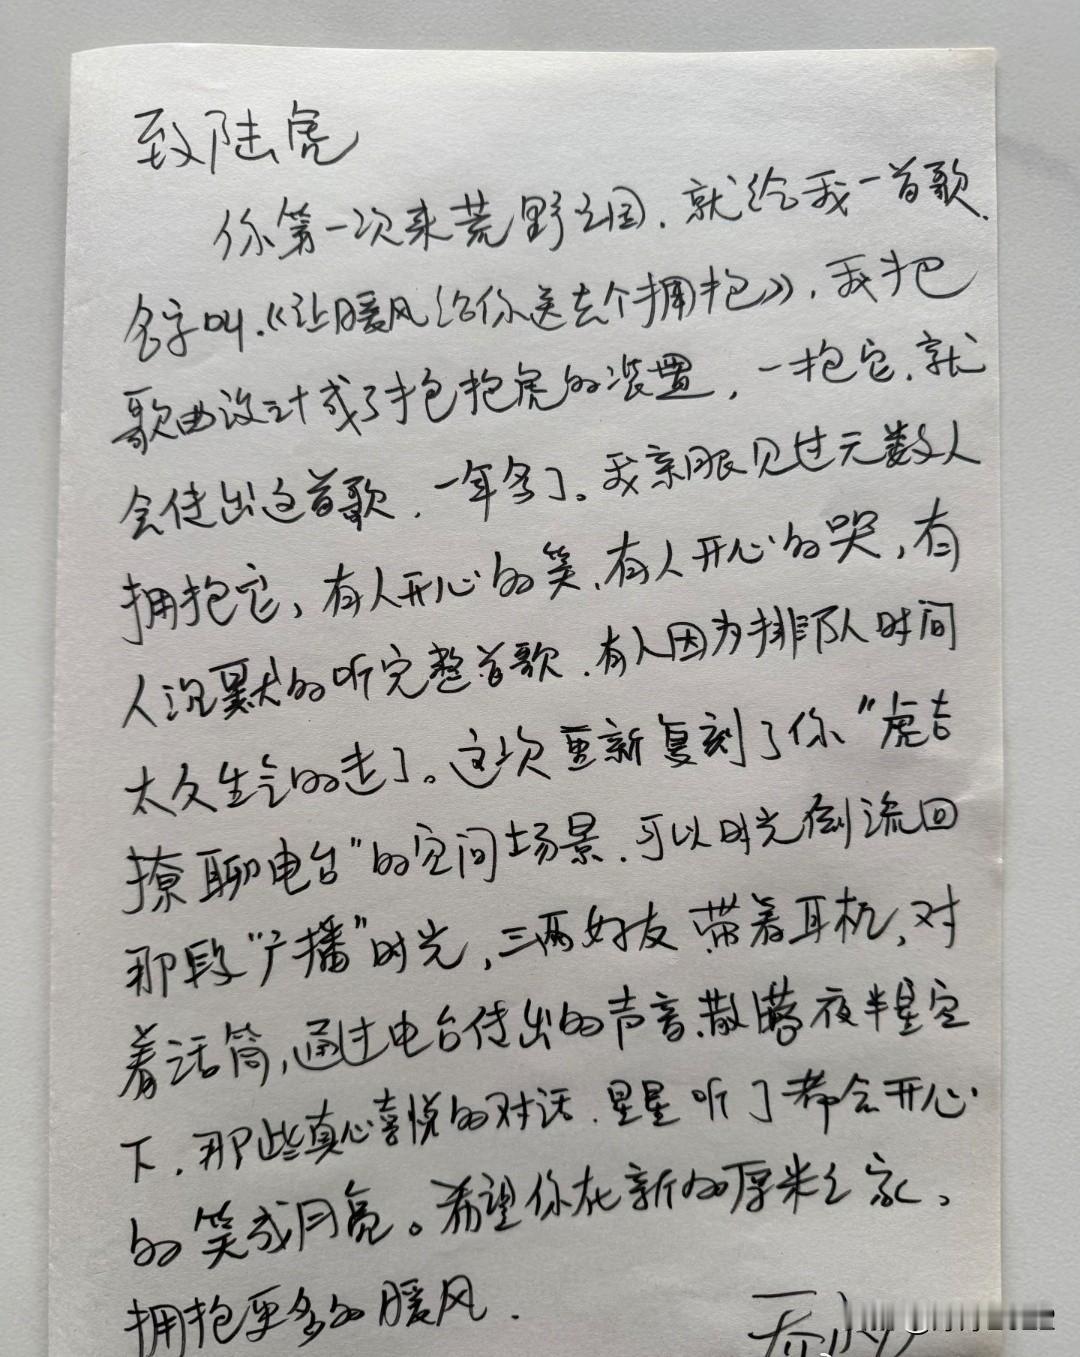 致陆虎
你第一次来荒野之国,就给我一首歌,
名字叫,《让暖风给你送去个拥抱》,我把
歌曲设计成了抱抱虎的装置,一抱它,就
会传出这首歌,一年多了。我亲眼见过无数人
拥抱它,有人开心的笑,有人开心的哭,有
人沉默的听完整首歌,有人因为排队时间
太久生气的走了。这次重新复刻了你“虎言
撩聊电台”的空间场景,可以时光倒流回
那段“广播”时光,三两好友带着耳机,对
着话筒,通过电台传出的声音,散落夜半星空
下,那些真心喜悦的对话,星星听了都会开心
的笑成月亮。希望你在新的厚米之家,
拥抱更多的暖风.